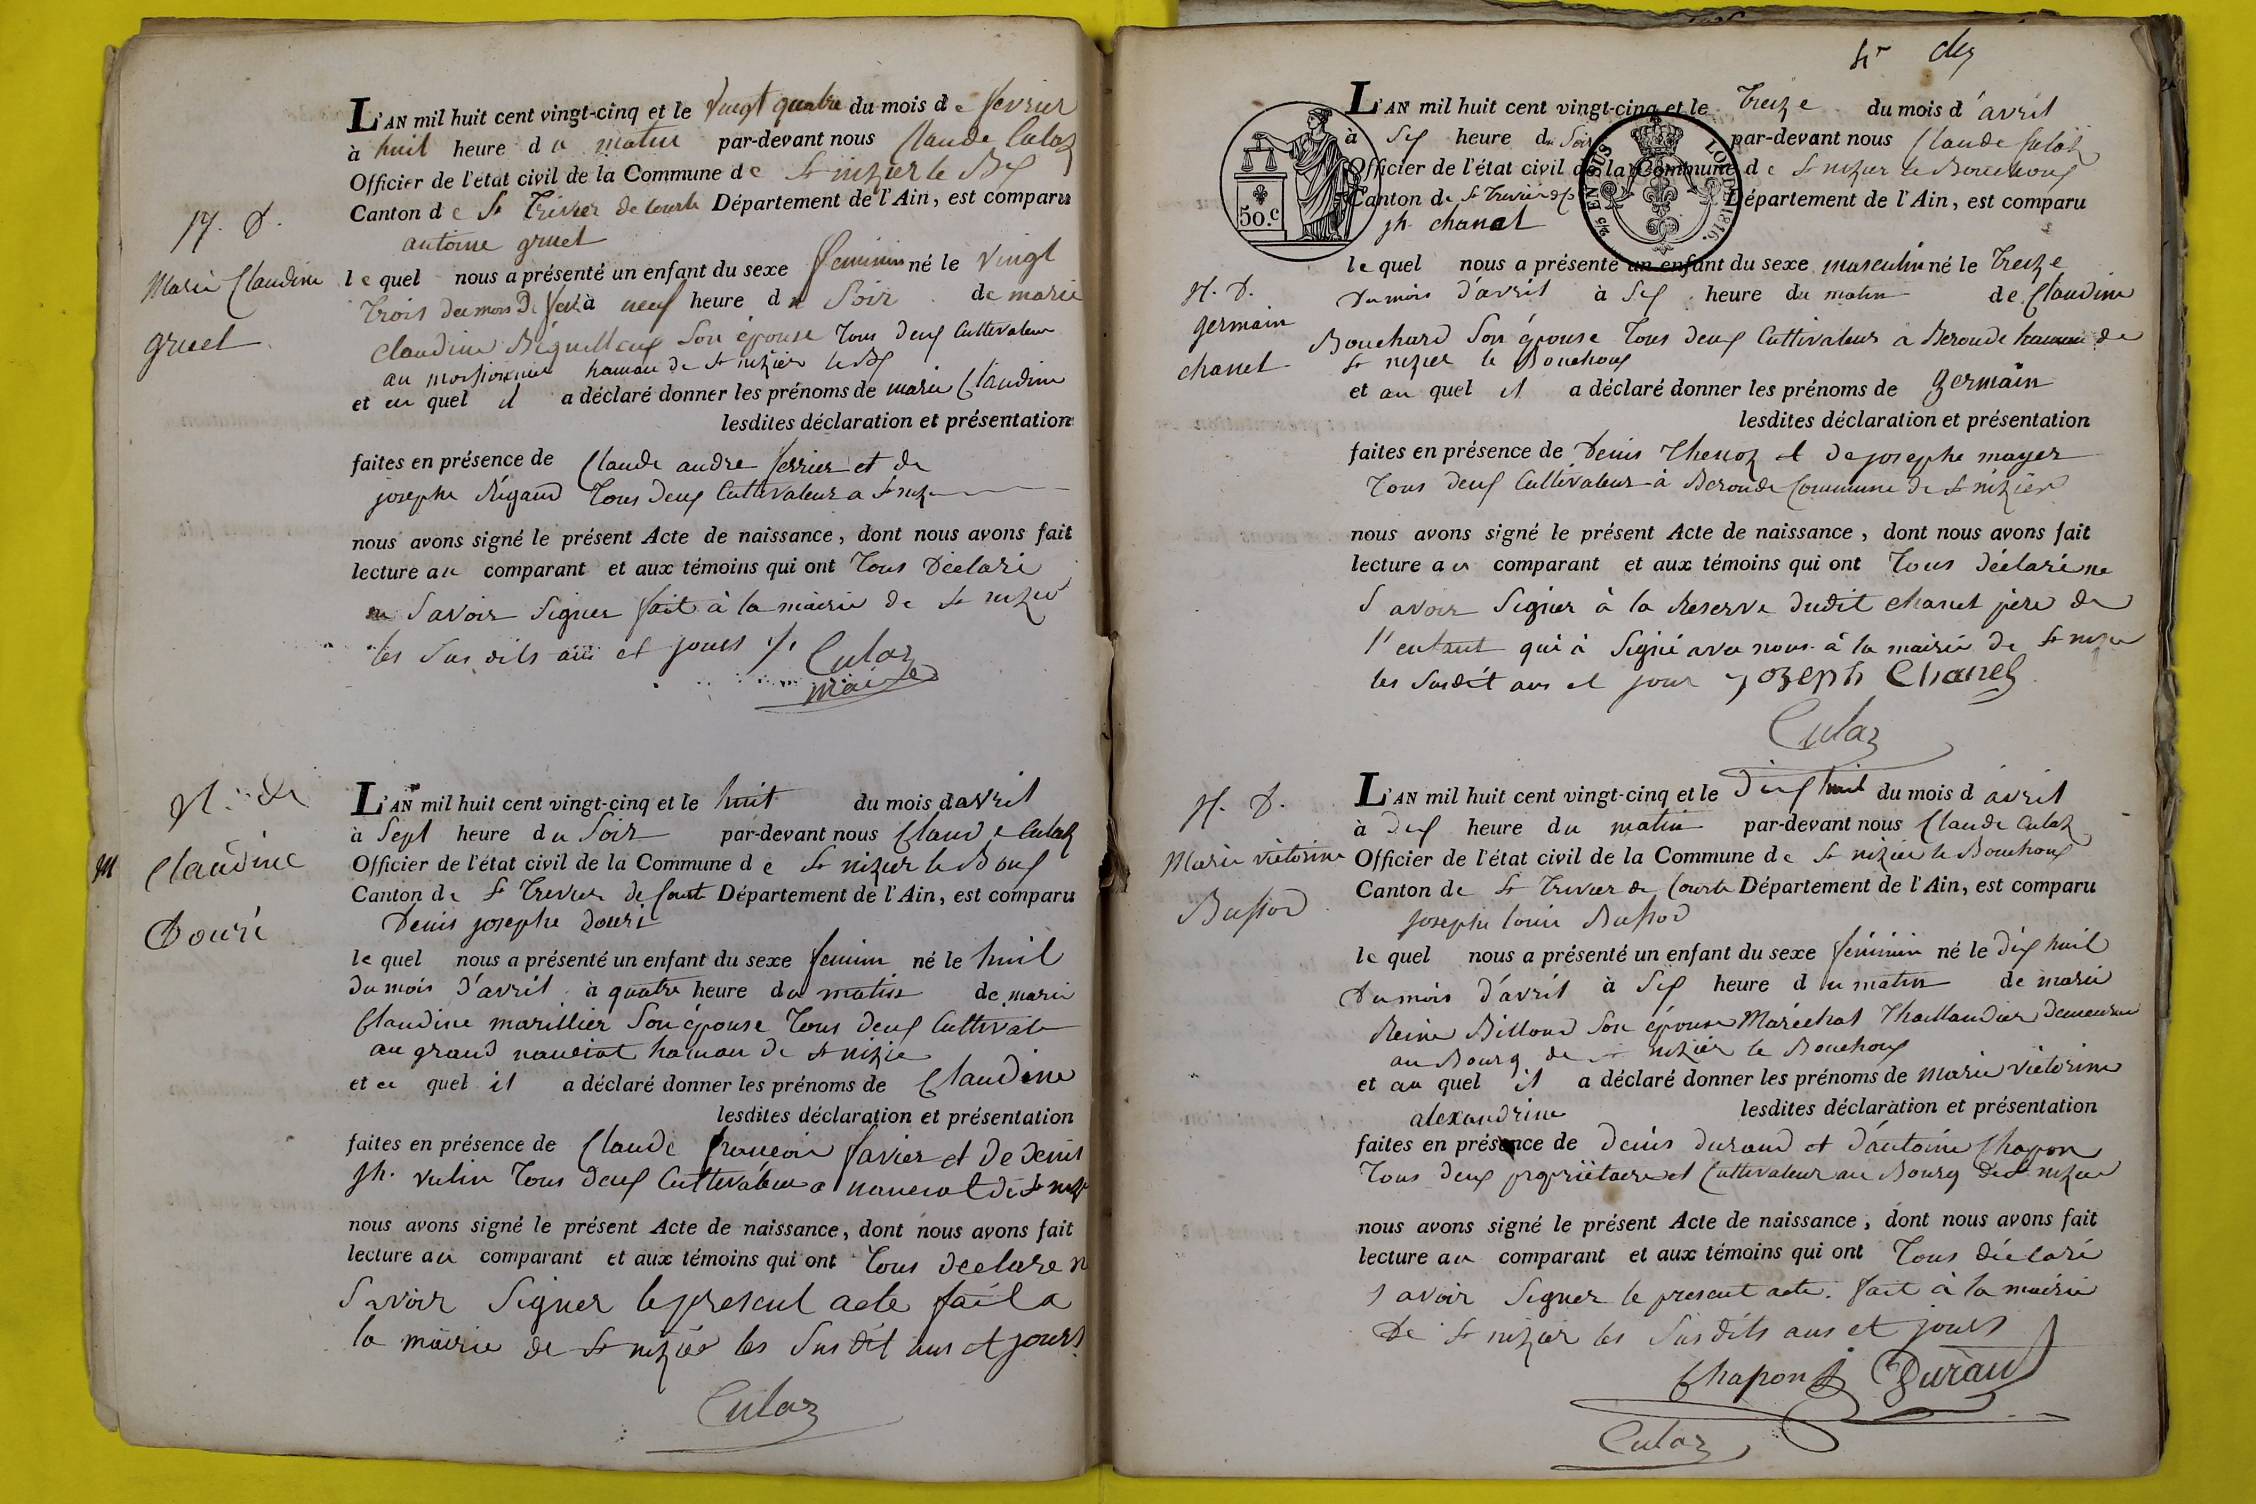 L'AN mil huit cent vingt-cinq et le vingt quatre du mois de fevrier
à huit heure du matin par-devant nous Claude Culaz
Officier de l'état civil de la Commune de St nizier le Bx
Canton de St Trivier de Courte Département de l'Ain, est comparu
antoine gruel
N. D.
Marie Claudine
gruel
le quel nous a présenté un enfant du sexe feminin né le vingt
trois du mois de à neuf heure du Soir de marie
Claudine Son épouse Tous deux Cultivateur
au hamau de St nizier le Bx
et au quel il a déclaré donner les prénoms de marie Claudine
lesdites déclaration et présentation
faites en présence de Claude andre ferrier et de
josephe Rigaud Tous deux Cultivateur a St niz
nous avons signé le présent Acte de naissance, dont nous avons fait
lecture au comparant et aux témoins qui ont Tous Déclaré
ne Savoir Signer fait à la mairie de St nizier
les Sus dits an et jours
Culaz
maire
N. D.
M Claudine
Douri
L'AN mil huit cent vingt-cinq et le huit du mois davril
à Sept heure du Soir par-devant nous Claude Culaz
Officier de l'état civil de la Commune de St nizier le Boux
Canton de St Trivier de Court Département de l'Ain, est comparu
Denis josephe Douri
le quel nous a présenté un enfant du sexe feminin né le huit
du mois d'avril à quatre heure du matin de marie
Claudine marillier Son épouse Tous deux Cultivat
au grand hamau de St nizie
et au quel il a déclaré donner les prénoms de Claudine
lesdites déclaration et présentation
faites en présence de Claude francois favier et de denis
jh. vulin Tous deux Cultivateur a de St niz
nous avons signé le présent Acte de naissance, dont nous avons fait
lecture au comparant et aux témoins qui ont Tous declare n
Savoir Signer le present acte fait a
la mairie de St nizier les Sus dit ans et jours
Culaz
50.c
2/5 EN SUS
LOI DE 1816.
L'AN mil huit cent vingt-cinq et le Treize du mois d'avril
à Six heure du Soir par-devant nous Claude Culaz
Officier de l'état civil de la Commune de St nizier le Bouchoux
Canton de St Trivier Département de l'Ain, est comparu
jh. chanel
N. D.
germain
chanel
le quel nous a présenté un enfant du sexe masculin né le Treize
Du mois d'avril à Six heure du matin de Claudine
Bouchard Son épouse Tous deux Cultivateur a Beroude hamau de
St nizier le Bouchoux
et au quel il a déclaré donner les prénoms de germain
lesdites déclaration et présentation
faites en présence de Denis Thenoz et de josephe mayer
Tous deux Cultivateur à Beroude Commune de St nizier
nous avons signé le présent Acte de naissance, dont nous avons fait
lecture au comparant et aux témoins qui ont Tous déclaré ne
Savoir Signer à la Reserve dudit chanel père de
l'enfant qui à Signé avec nous à la mairie de St nizier
les Susdit ans et jour jozeph Chanel
Culaz
N. D.
Marie victorine
Bussod
L'AN mil huit cent vingt-cinq et le Dix huit du mois d'avril
à Dix heure du matin par-devant nous Claude Culaz
Officier de l'état civil de la Commune de St nizier le Bouchoux
Canton de St Trivier de Courte Département de l'Ain, est comparu
josephe louis Bussod
le quel nous a présenté un enfant du sexe féminin né le dix huit
Du mois d'avril à Six heure du matin de marie
Reine Billoud Son épouse Maréchal Thaillandier demeurant
au Bourg de St nizier le Bouchoux
et au quel il a déclaré donner les prénoms de marie victorine
alexandrine lesdites déclaration et présentation
faites en présence de denis durand et d'antoine Chapon
Tous deux propriétaire et Cultivateur au Bourg de St nizier
nous avons signé le présent Acte de naissance, dont nous avons fait
lecture au comparant et aux témoins qui ont Tous déclaré
savoir Signer le present acte. fait à la mairie
De St nizier les Sus dits ans et jours
Chapon Duran
Culaz